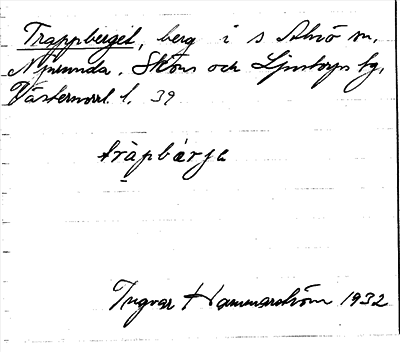 Trappberget, berg i s Alnö sn,
Njurunda, Sköns och Ljustorps tg,
Västernorrl. l. 39
tràpbærja
Ingvar Hammarström 1932